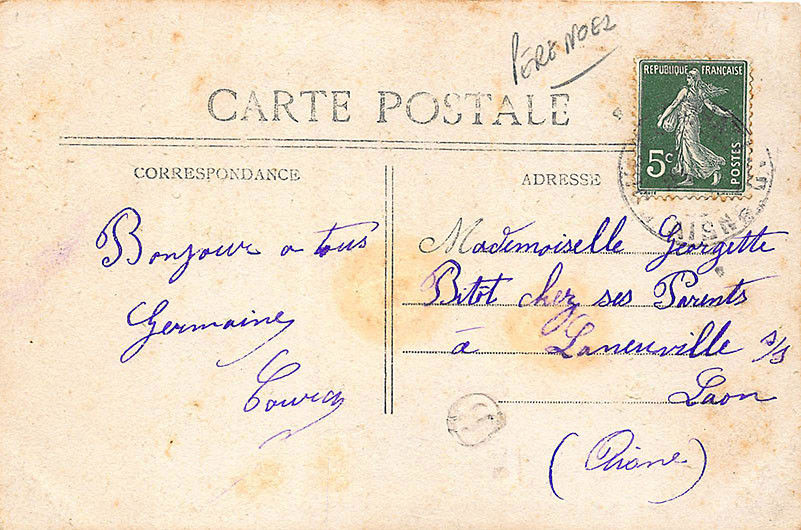 PÈRE NOEL
CARTE POSTALE
RÉPUBLIQUE FRANÇAISE
5c
POSTES
CORRESPONDANCE
Bonjour a tous
Germaine
ADRESSE
Mademoiselle Georgette
Bitot chez ses Parents
à Laneuville s/s
Laon
(Aisne)